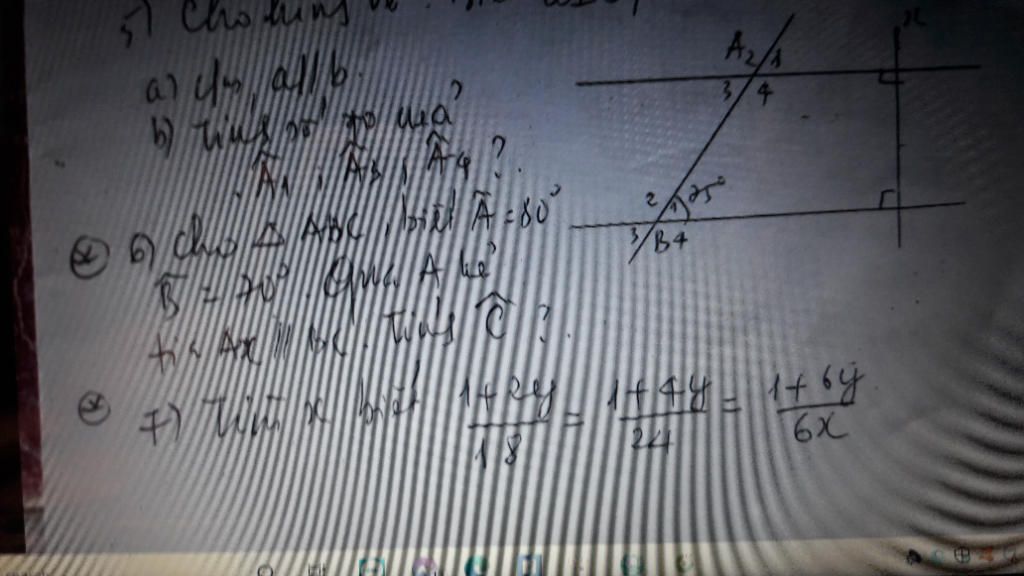 5) Cho hình vẽ
a) c/m a//b.
b) Tính số đo của
Â₁, Â₃, Â₄?
6) Cho Δ ABC, biết Â = 80°
B̂ = 70°. Qua A kẻ
tia Ax // BC. Tính Ĉ?
7) Tìm x biết (1+2y)/18 = (1+4y)/24 = (1+6y)/6x
A 2 1
3 4
2 1 75°
3 B 4
x